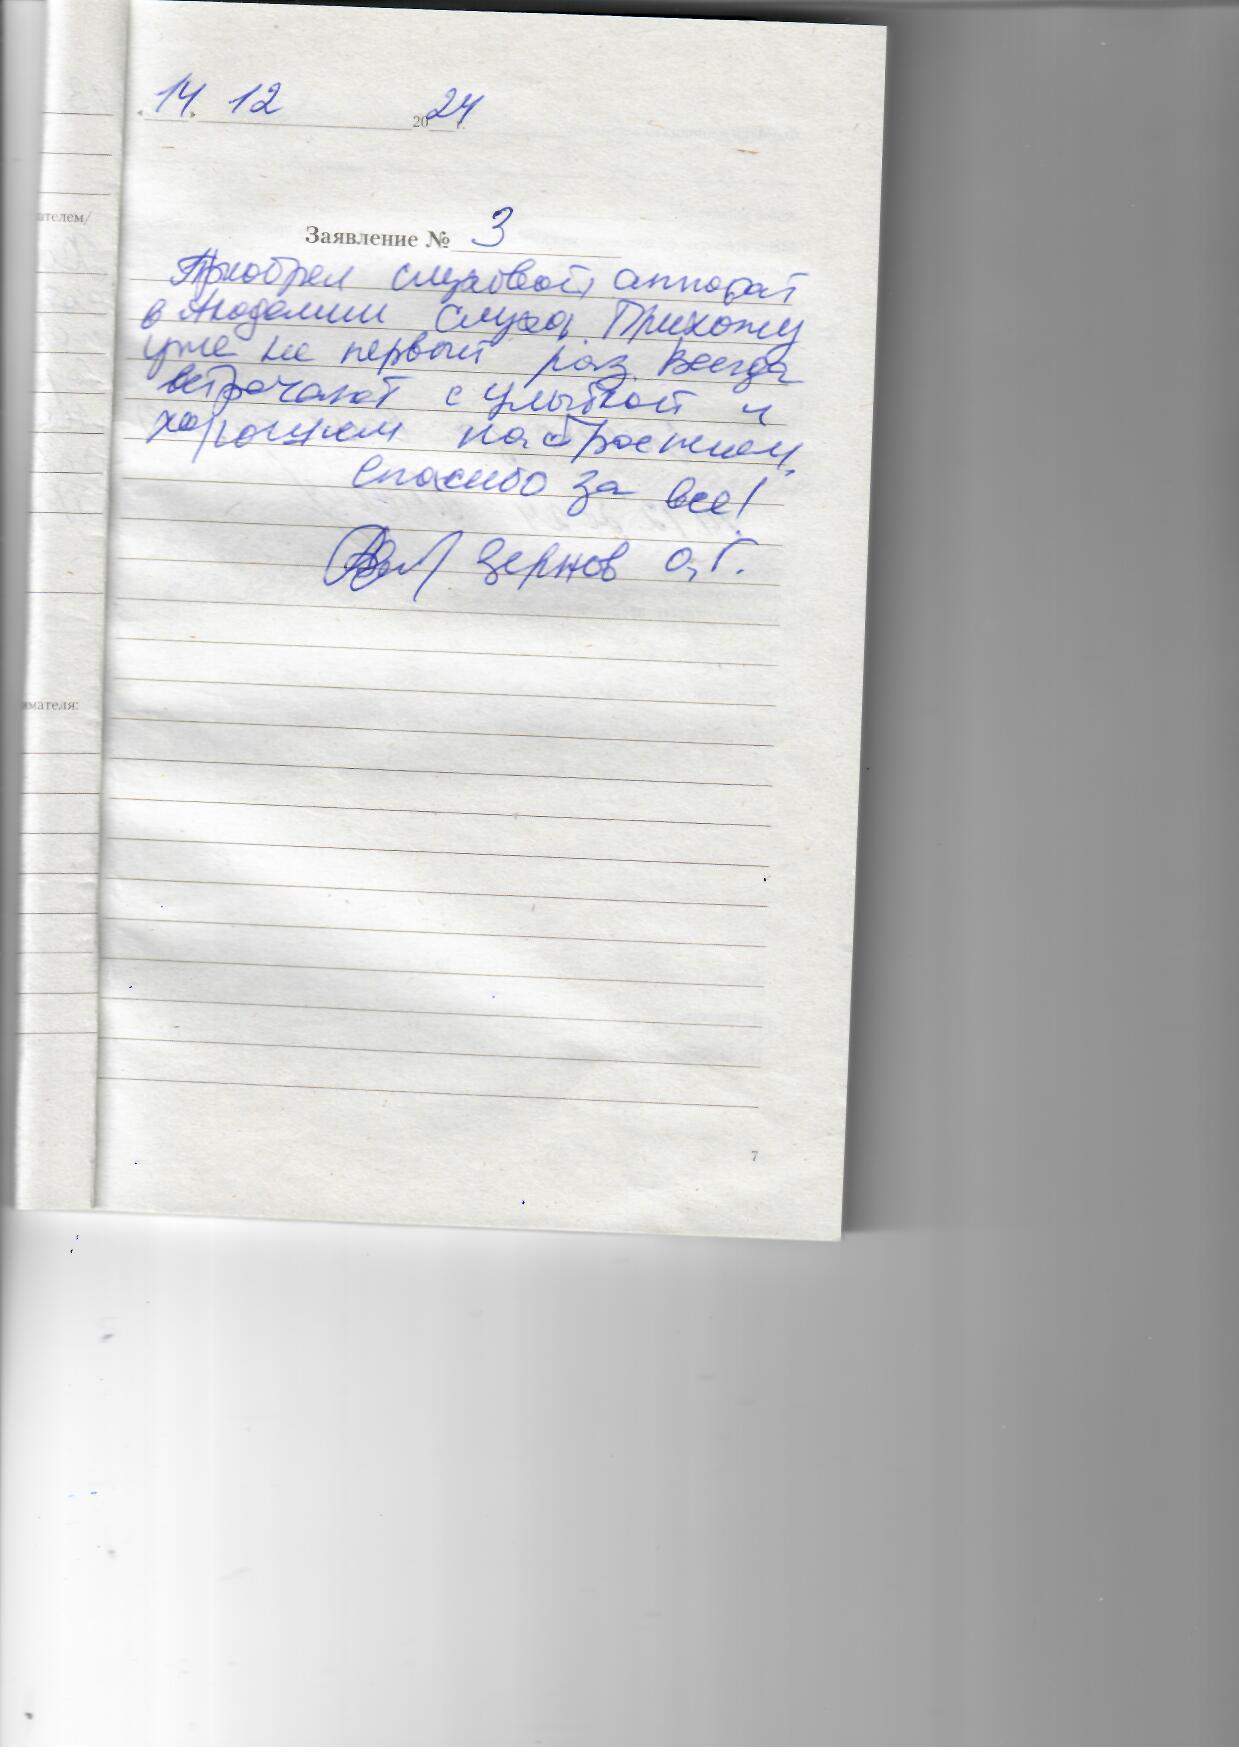 «14» 12 2024 г.
ателем/
Заявление № 3
Приобрел слуховой аппарат
в Академии слуха. Прихожу
уже не первый раз. Всегда
встречают с улыбкой и
хорошим настроением.
Спасибо за все!
Зернов О.Г.
имателя:
7